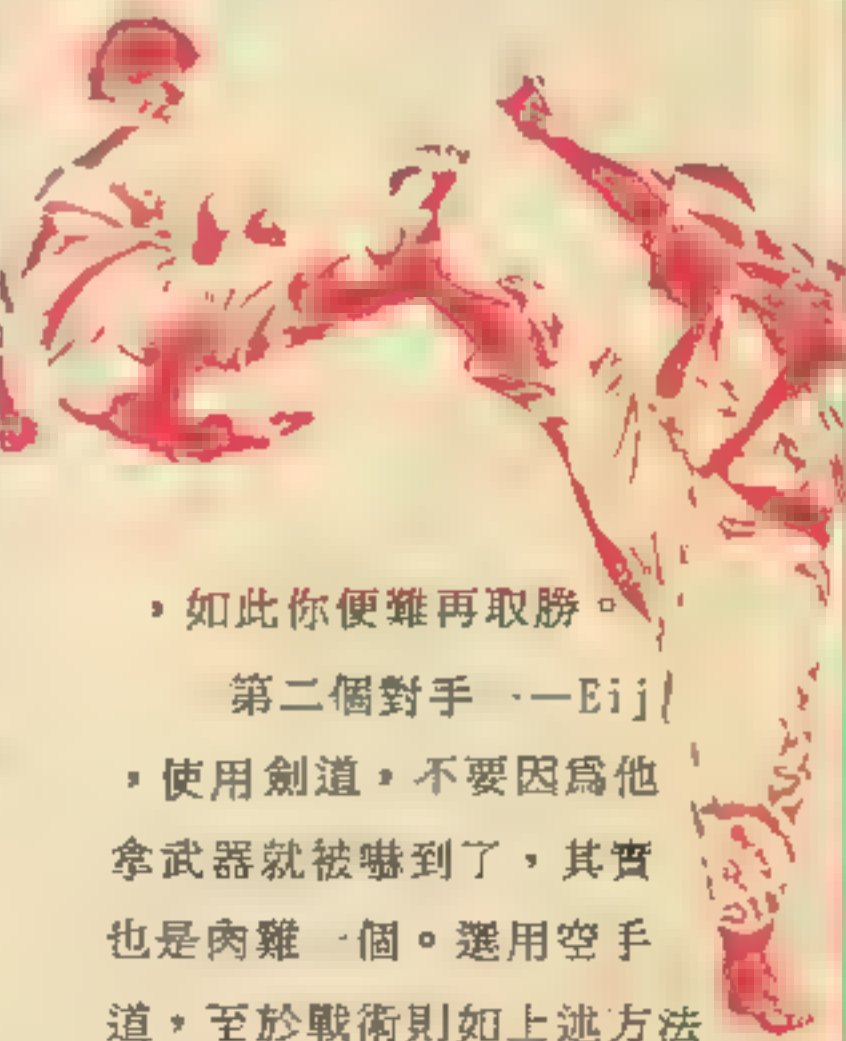 ，如此你便難再取勝。
第二個對手 -—Eij
，使用劍道，不要因爲他
拿武器就被嚇到了，其實
也是肉雞一個。選用空手
道，至於戰術則如上述方法